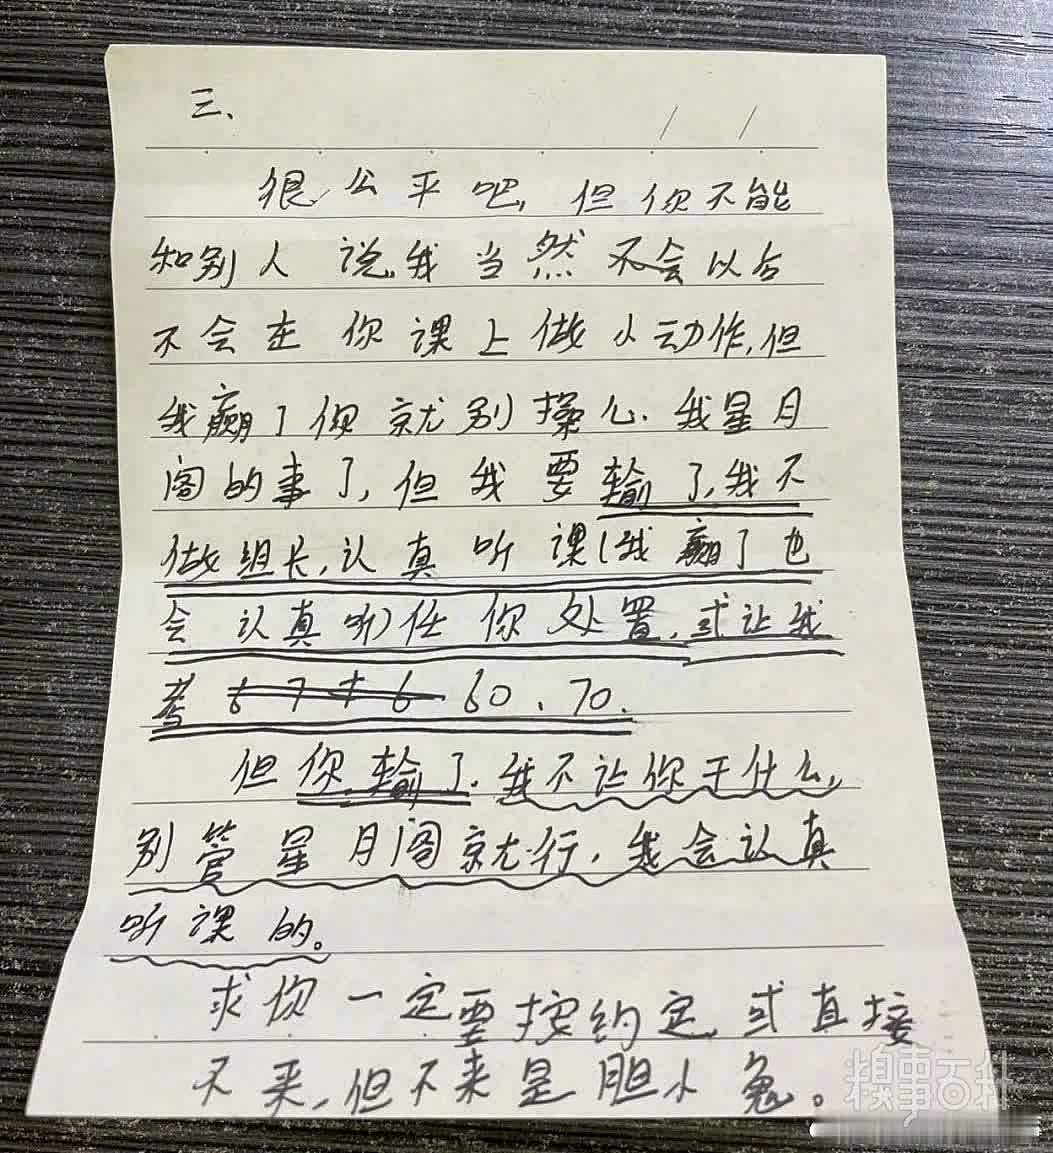 三、
很公平吧,但你不能
和别人说,我当然不会以后
不会在你课上做小动作,但
我赢了你就别操心.我星月
阁的事了,但我要输了,我不
做组长,认真听课(我赢了也
会认真听)任你处置,或让我
考 60、70.
但你输了.我不让你干什么,
别管星月阁就行,我会认真
听课的。
求你一定要按约定,或直接
不来,但不来是胆小鬼。
糗事百科